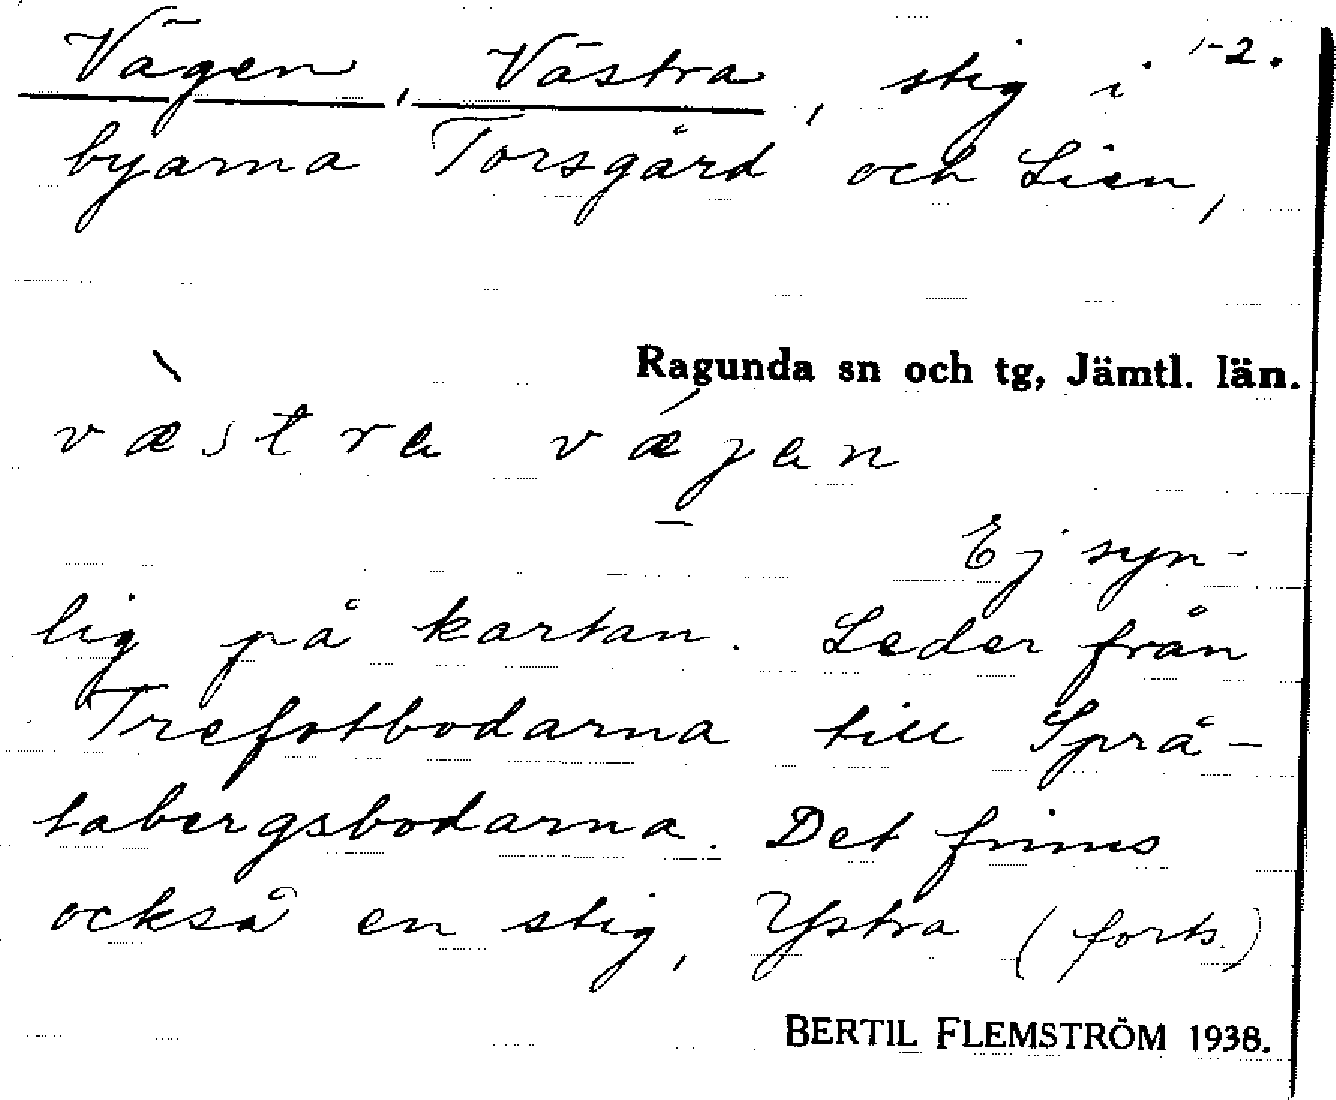 Vägen, Västra, stig i 1-2.
byarna Torsgård och Lien,
Ragunda sn och tg, Jämtl. län.
væ̀stra vǽgan
Ej syn-
lig på kartan. Leder från
Trefotbodarna till Språ-
tabergsbodarna. Det finns
också en stig, Ystra (forts.)
BERTIL FLEMSTRÖM 1938.